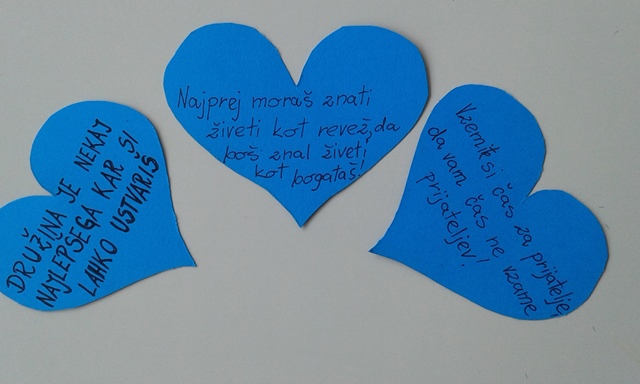 DRUŽINA JE NEKAJ
NAJLEPŠEGA KAR SI
LAHKO USTVARIŠ
Najprej moraš znati
živeti kot revež, da
boš znal živeti
kot bogataš!
Vzemite si čas za prijatelje,
da vam čas ne vzame
prijateljev!